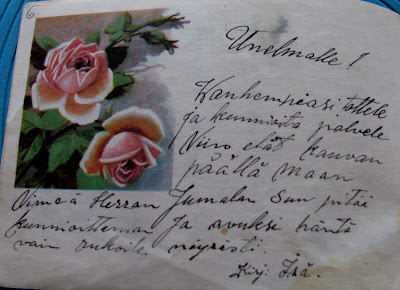 6
Unelmalle!
Vanhempiasi tottele
ja kunnioita palvele
Niin elät kauvan
päällä maan
Nimeä Herran Jumalan Sun pitää
kunnioittaman ja avuksi häntä
vain rukoile nöyrästi.
Kirj: Isä.